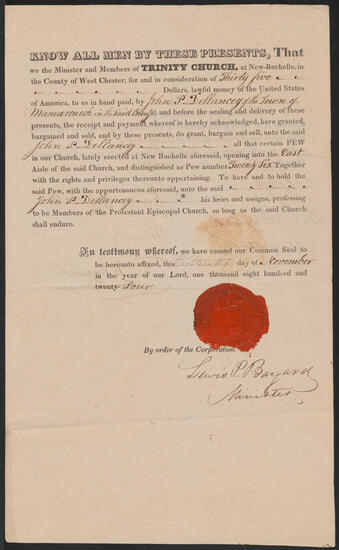 KNOW ALL MEN BY THESE PRESENTS, That
we the Minister and Members of TRINITY CHURCH, at New-Rochelle, in
the County of West Chester, for and in consideration of Thirty five
Dollars, lawful money of the United States
of America, to us in hand paid, by John P. DeLancey of the Town of
Mamaroneck in the said County at and before the sealing and delivery of these
presents, the receipt and payment whereof is hereby acknowledged, have granted,
bargained and sold, and by these presents, do grant, bargain and sell, unto the said
John P. DeLancey all that certain PEW
in our Church, lately erected at New Rochelle aforesaid, opening into the East
Aisle of the said Church, and distinguished as Pew number Twenty Six Together
with the rights and privileges thereunto appertaining. To have and to hold
the said Pew, with the appertenances aforesaid, unto the said
John P. DeLancey his heirs and assigns, professing
to be Members of the Protestant Episcopal Church, so long as the said Church
shall endure.
In testimony whereof, we have caused our Common Seal to
be hereunto affixed, this day of November
in the year of our Lord, one thousand eight hundred and
twenty Four
By order of the Corporation.
Lewis P. Bayard
Minister